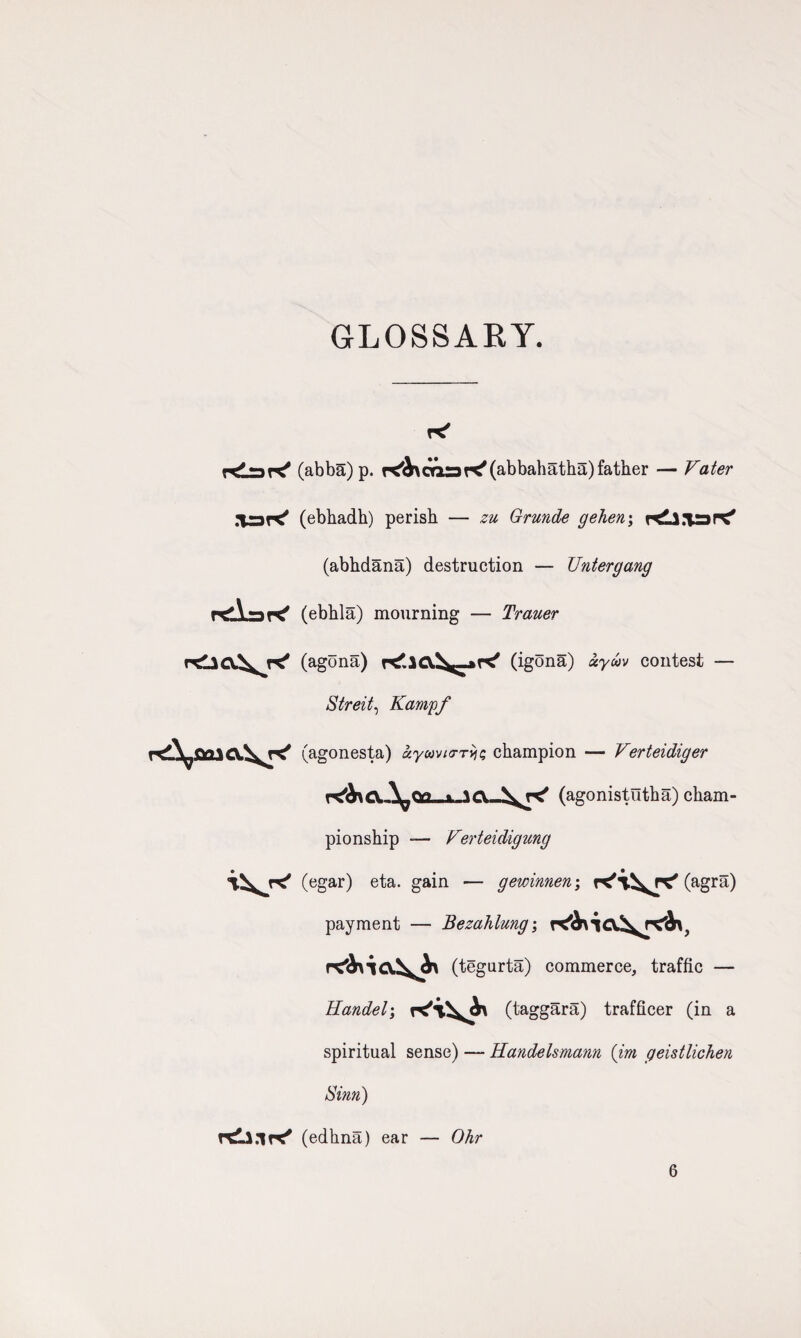 GLOSSARY.
ܐ
ܐܒܐ (abbā) p. ܐܒܗ̈ܬܐ (abbahāthā) father — Vater
ܐܒܕ (ebhadh) perish — zu Grunde gehen; ܐܒܕܢܐ
(abhdānā) destruction — Untergang
ܐܒܠܐ (ebhlā) mourning — Trauer
ܐܓܘܢܐ (agōnā) ܐܝܓܘܢܐ (igōnā) ἀγών contest —
Streit, Kampf
ܐܓܘܢܣܛܐ (agonesta) ἀγωνιστής champion — Verteidiger
ܐܓܘܢܝܣܛܘܬܐ (agonistūthā) cham-
pionship — Verteidigung
ܐܓܪ (egar) eta. gain — gewinnen; ܐܓܪܐ (agrā)
payment — Bezahlung; ܬܐܓܘܪܬܐ,
ܬܓܘܪܬܐ (tēgurtā) commerce, traffic —
Handel; ܬܓܪܐ (taggārā) trafficer (in a
spiritual sense) — Handelsmann (im geistlichen
Sinn)
ܐܕܢܐ (edhnā) ear — Ohr
6